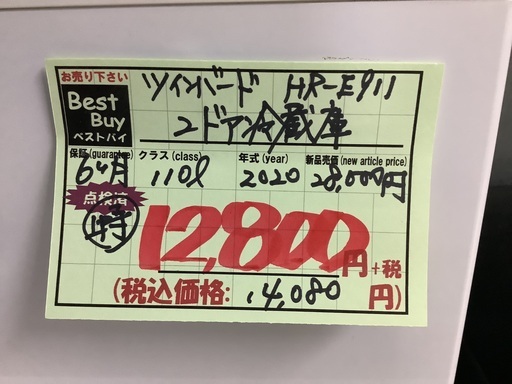 お売り下さい
Best
Buy
ベストバイ
ツインバード HR-E911
2ドア冷蔵庫
保証(guarantee) クラス(class) 年式(year) 新品売価(new article price)
6ヶ月 110l 2020 28,000円
点検済
特
12,800円+税
(税込価格: 14,080円)